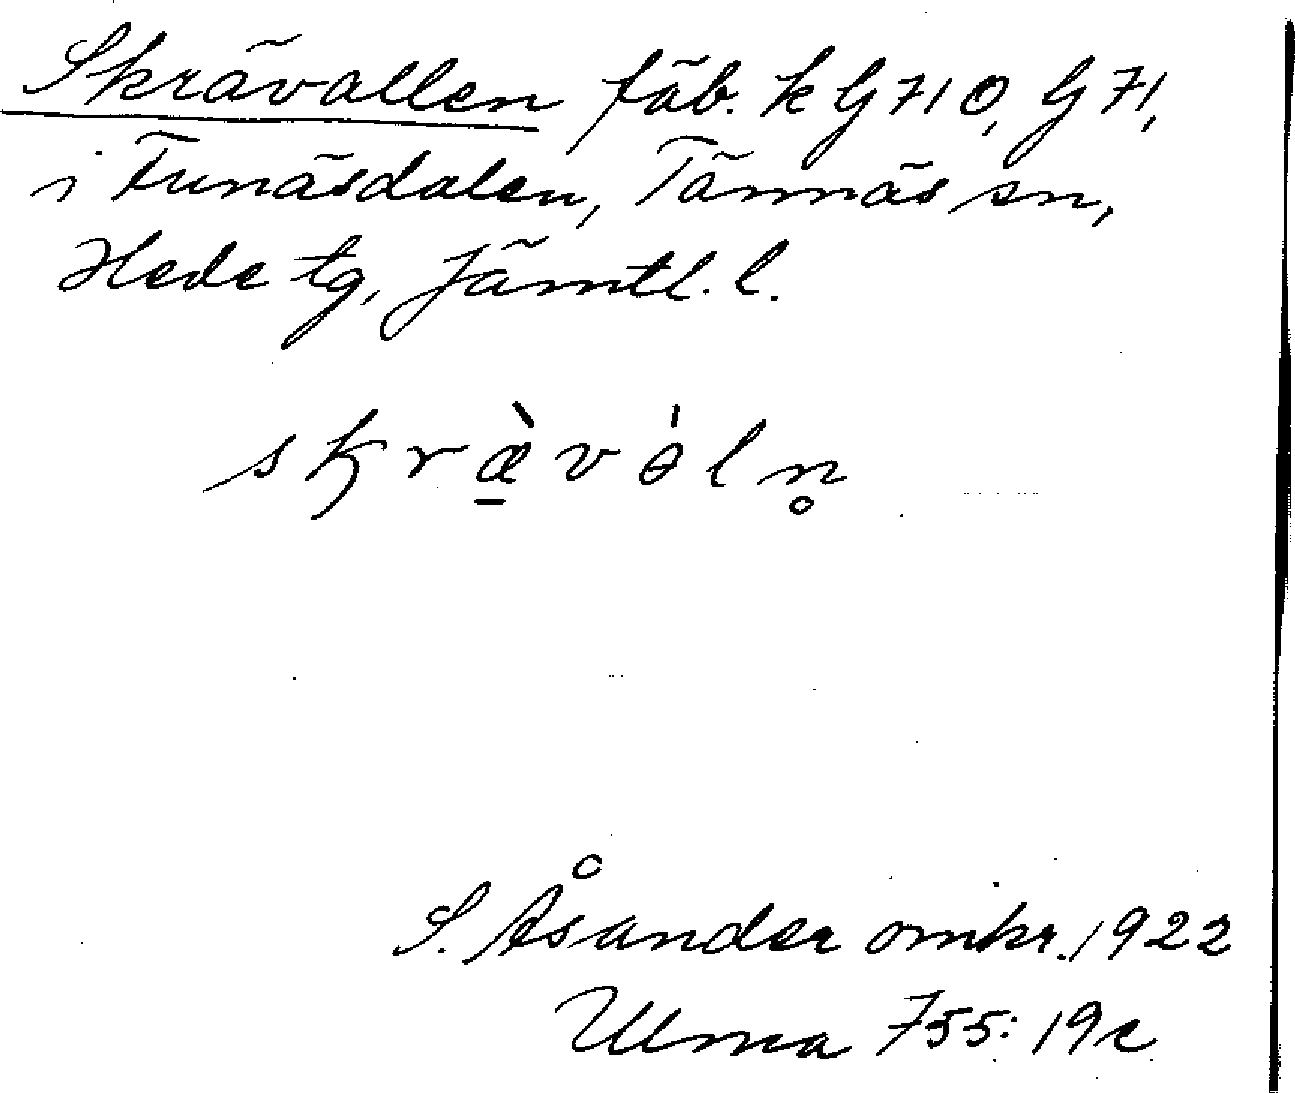 Skrävallen fäb. k G 71 0, G 71,
i Funäsdalen, Tännäs sn,
Hede tg, Jämtl. l.
skræ̠̀və̍ln̥
S. Åsander omkr. 1922
Ulma 755: 19c